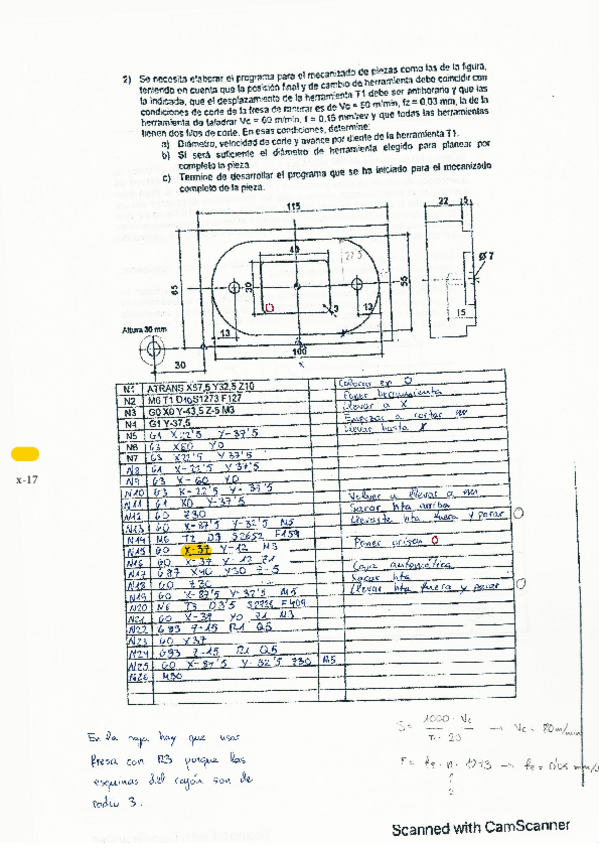 2) Se necesita elaborar el programa para el mecanizado de piezas como las de la figura,
teniendo en cuenta que la posición final y de cambio de herramienta debe coincidir con
la indicada, que el desplazamiento de la herramienta T1 debe ser antihorario y que las
condiciones de corte de la fresa de ranurar es de Vc = 50 m/min, fz = 0,03 mm, la de la
herramienta de taladrar Vc = 60 m/min, f = 0,15 mm/rev y que todas las herramientas
tienen dos filos de corte. En esas condiciones, determine:
a) Diámetro, velocidad de corte y avance por diente de la herramienta T1.
b) Si será suficiente el diámetro de herramienta elegido para planear por
completo la pieza
c) Termine de desarrollar el programa que se ha iniciado para el mecanizado
completo de la pieza.
115
22 5
40
27.5
65
30
55
Ø 7
3
13
15
Altura 30 mm
13
100
30
N1 ATRANS X57,5 Y32,5 Z10 Colocar en O
N2 M6 T1 D10 S1273 F127 Poner herramienta
N3 G0 X0 Y-43,5 Z-5 M3 Llevar a X
N4 G1 Y-37,5 Empezar a cortar
N5 G1 X22'5 Y-37'5 llevar hasta
N6 G3 X60 Y0
N7 G3 X22'5 Y37'5
N8 G1 X-22'5 Y37'5
N9 G3 X-60 Y0
N10 G3 X-22'5 Y-37'5 Volver a llevar a
x-17
N11 G1 X0 Y-37'5 Sacar hta arriba
N12 G0 Z30 Llevarte hta fuera y parar
N13 G0 X-87'5 Y-32'5 M5
N14 M6 T2 D3 S2652 F159 Poner origen O
N15 G0 X-37 Y-12 M3
N16 G0 X-37 Y-12 Z1 Caja automática
N17 G87 X40 Y30 Z-5 Sacar hta
N18 G0 Z30 Llevar hta fuera y parar
N19 G0 X-87'5 Y-32'5 M5
N20 M6 T3 D3'5 F409
N21 G0 X-37 Y0 Z1 M3
N22 G83 Z-15 R1 Q5
N23 G0 X37
N24 G83 Z-15 R1 Q5
N25 G0 X-87'5 Y-32'5 Z30 M5
N26 M30
En la caja hay que usar
fresa con R3 porque las
esquinas del cajón son de
radio 3.
S = 1000 · Vc / π · 20 → Vc = 80 m/min
F = fz · n · 1273 → fz =
2
Scanned with CamScanner